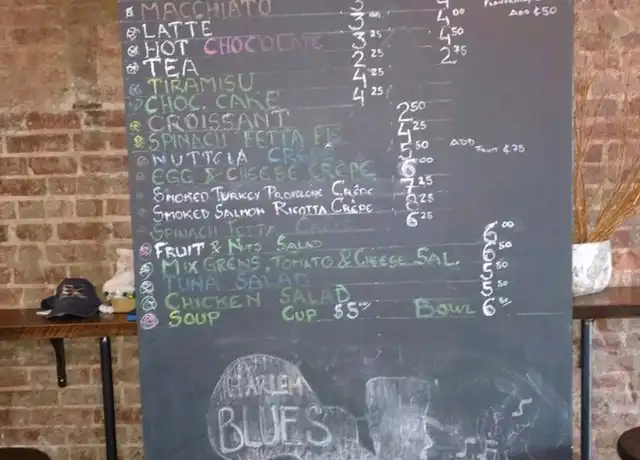 MACCHIATO
ADD ¢50
LATTE 3 00 4 00
HOT CHOCOLATE 3 25 4 50
TEA 2 2 75
TIRAMISU 4 25
CHOC. CAKE 4 25
CROISSANT 2 50
SPINACH FETTA 4 25
NUTTELA CREPE 5 50 ADD ¢75
EGG & CHEESE CRÊPE 6 00
SMOKED TURKEY PROVOLONE CRÊPE 7 25
SMOKED SALMON RICOTTA CRÊPE
SPINACH FETTA 6 25
FRUIT & NUTS SALAD 6 00
MIX GRENS, TOMATO & CHEESE SAL. 6 50
TUNA SALAD 5 50
CHICKEN SALAD 5 50
SOUP CUP $5 BOWL 6 50
HARLEM
BLUES